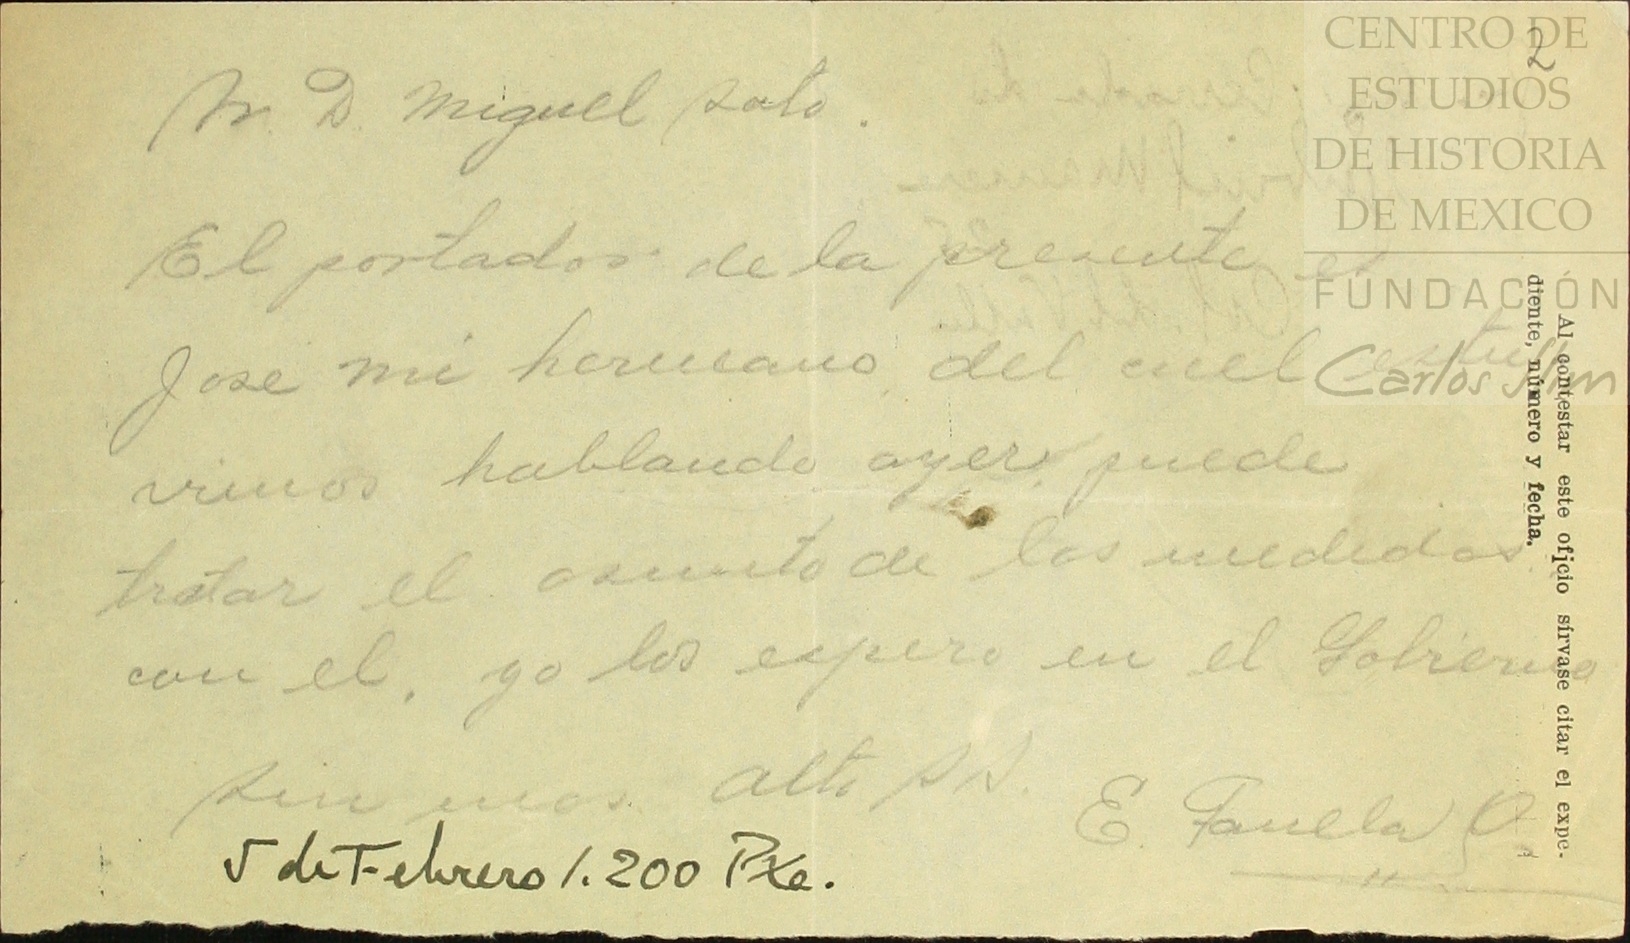 2
Sr. D. Miguel Soto.
El portador de la presente es
Jose mi hermano, del cuel estu
vimos hablando ayer, puede
tratar el asunto de las medidas
con el, yo los espero en el Gobierno
sin mas. Atto SS.
E. Q.
5 de Febrero 1.200 Pza.
Al contestar este oficio sírvase citar el expe-
diente, número y fecha.
CENTRO DE
ESTUDIOS
DE HISTORIA
DE MEXICO
FUNDACIÓN
Carlos Slim